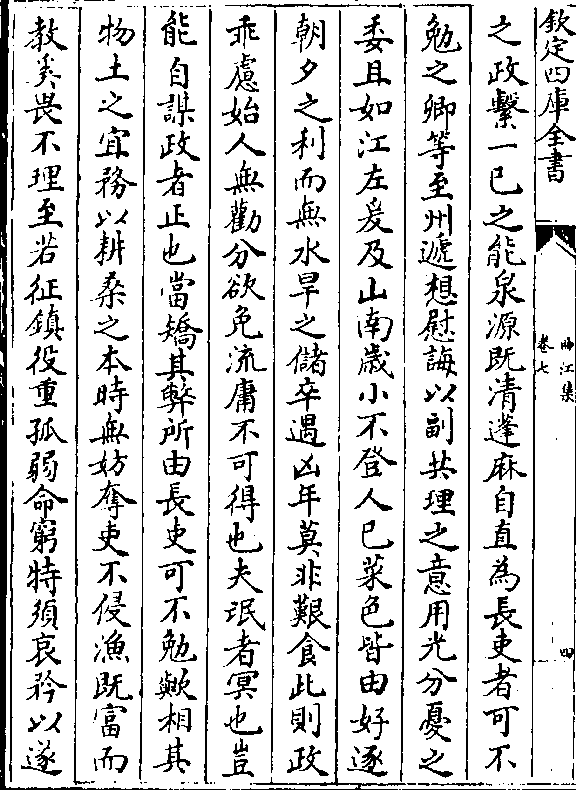 欽定四庫全書
曲江集
卷七
四
之政繫一已之能泉源既清蓬麻自直為長吏者可不
勉之卿等至州遞想慰誨以副共理之意用光分憂之
委且如江左爰及山南歲小不登人已菜色皆由好逐
朝夕之利而無水旱之儲卒遇凶年莫非艱食此則政
乖慮始人無勸分欲免流庸不可得也夫氓者冥也豈
能自謀政者正也當矯其弊所由長吏可不勉歟相其
物土之宜務以耕桑之本時無妨奪吏不侵漁既富而
教奚畏不理至若征鎮役重孤弱命窮特須哀矜以遂